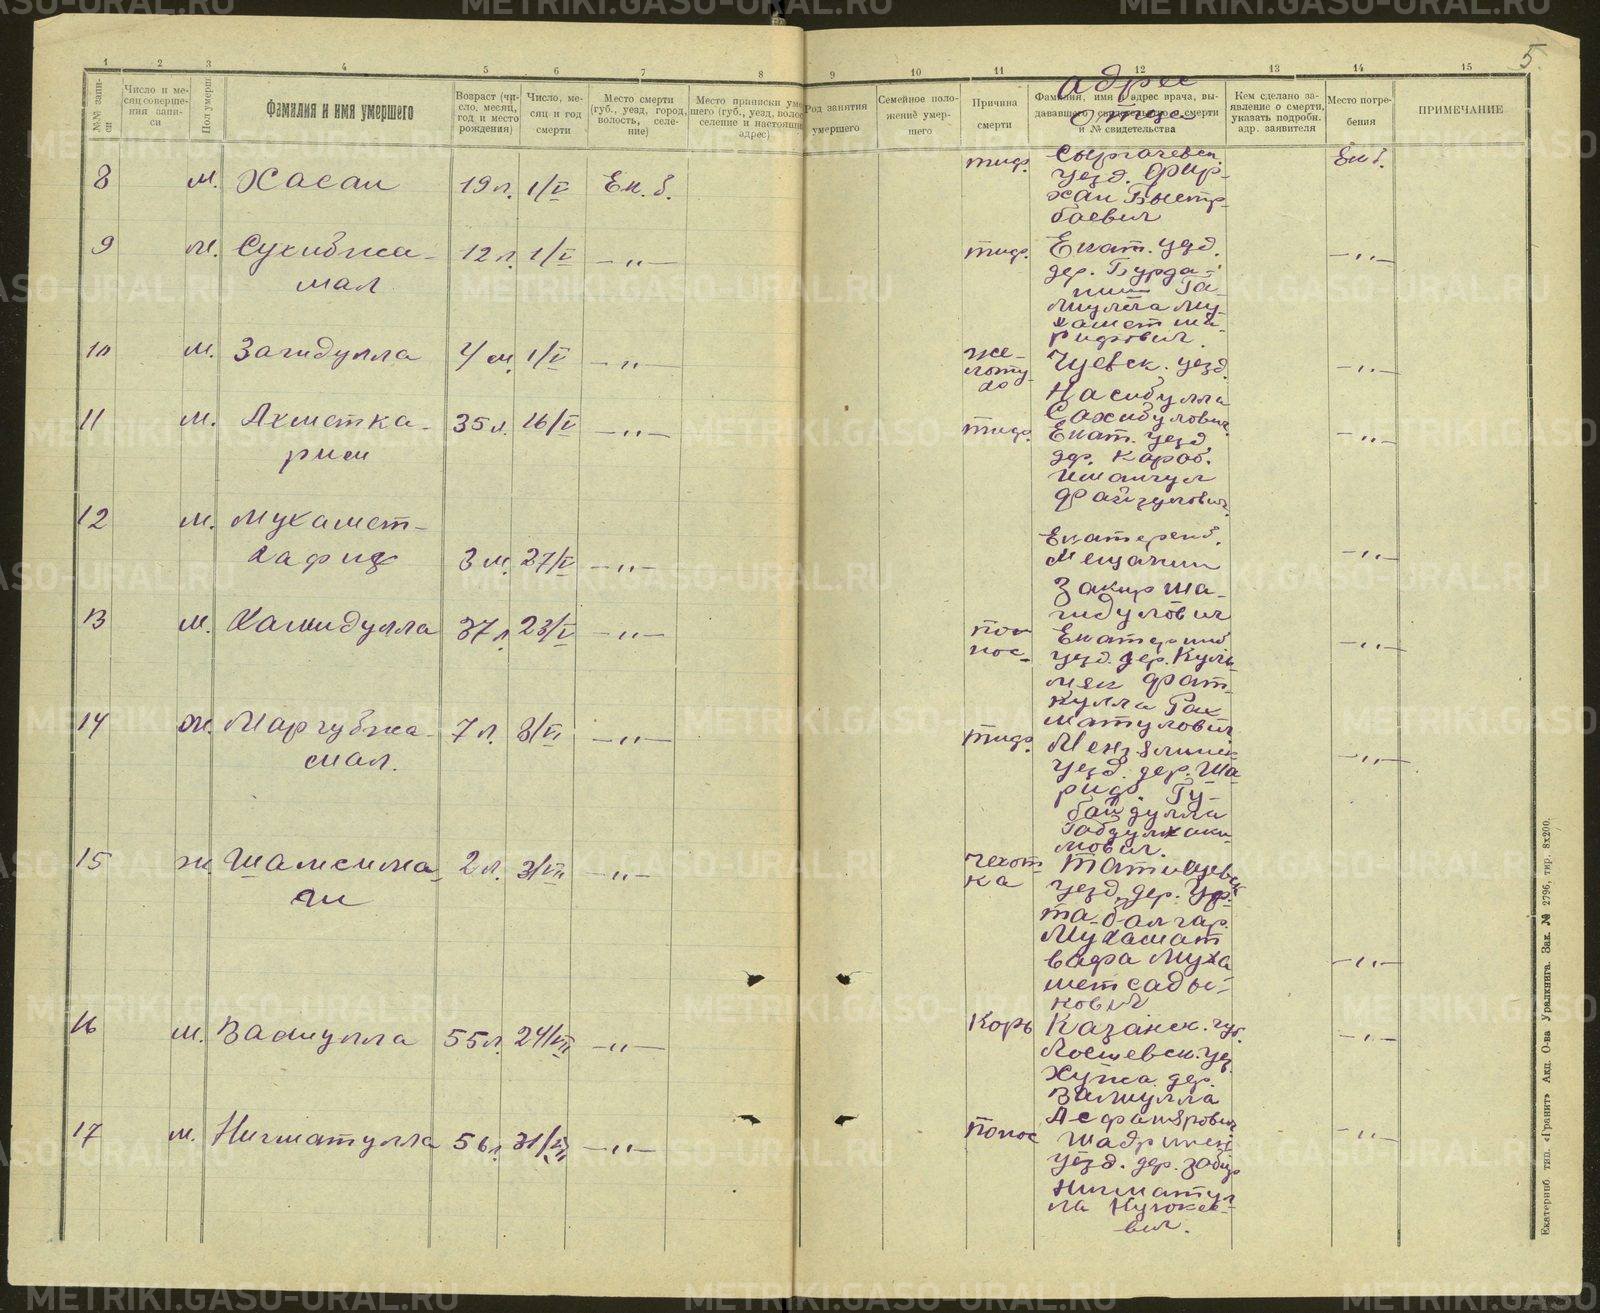 5
1 2 3 4 5 6 7 8 9 10 11 12 13 14 15
№№ записи
Число и месяц совершения записи
Пол умерш
Фамилия и имя умершего
Возраст (число, месяц, год и место рождения)
Число, месяц и год смерти
Место смерти (губ., уезд, город, волость, селение)
Место приписки умершего (губ., уезд, волос селение и настоящи адрес)
Род занятия умершего
Семейное положение умершего
Причина смерти
Фамилия, имя и адрес врача, выдававшего свидетельство о смерти и № свидетельства
адрес
отца
Кем сделано заявление о смерти, указать подробн. адр. заявителя
Место погребения
ПРИМЕЧАНИЕ
8 м. Хасан 19 л. 1/V Ек. б. тиф. Екб.
уезд. Фир-
хан Быстр-
баевич
9 м. Сухибжа- 12 л. 1/V —"— тиф. Екат. уезд. —"—
мал
дер. Бурда-
Га-
мулла Му-
хамет ша-
рифович.
10 м. Загидулла 4 м. 1/V —"— уезд. —"—
Насибулла
Сахибулович.
11 м. Ахметка- 35 л. 16/V —"— тиф. Екат. уезд —"—
рим
дер. Караб.
Имангул
Файзулович.
12 м. Мухамет-
хафиз 3 м. 27/V —"— Екатеренб. —"—
мещанин
Закир Ша-
гидулович
13 м. Хамидулла 37 л. 23/V —"— понос- Екатеринб —"—
уезд. дер. Куль-
мяк Фат-
кулла Рах
матулович
14 ж. Маргубжа- 7 л. 3/VI —"— тиф. Мензелинск —"—
мал.
уезд. дер. Ша-
риф. Гу-
байдулла
Габдулхаки-
мович.
15 ж. Шамсима- 2 л. 3/VII —"— чехот- —"—
ка
уезд. дер. Ур-
та-балгар.
Мухамат
вафа Муха
метсады-
кович
16 м. Валиулла 55 л. 24/VII —"— Корь Казанск. губ. —"—
уез.
Хужа дер.
Валиулла
Асфандярович
17 м. Нигматулла 56 л. 31/VII —"— понос Шадринск —"—
уезд. дер.
Нигматул-
ла
вич.
Екатеринб. тип. «Гранит» Акц. О-ва Уралкнига. Зак. № 2796, тир. 8x200.
METRIKI.GASO-URAL.RU